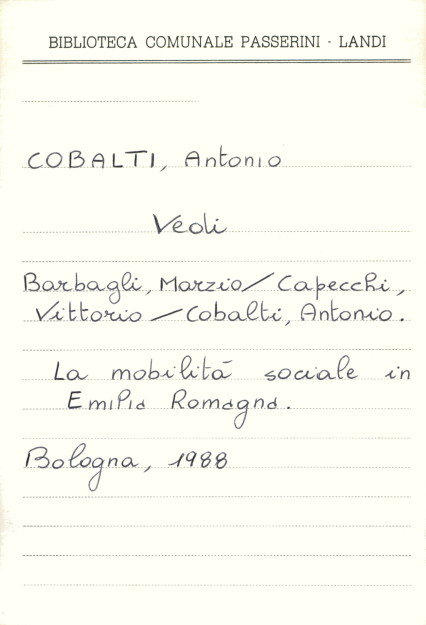 BIBLIOTECA COMUNALE PASSERINI · LANDI
COBALTI, Antonio
Vedi
Barbagli, Marzio / Capecchi,
Vittorio / Cobalti, Antonio.
La mobilità sociale in
Emilia Romagna.
Bologna, 1988